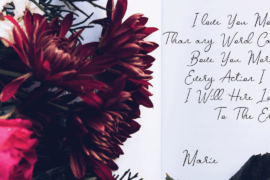 I love You Mo
Than any Word Ca
Bove You Mor
Every Action I
I Will Here Lo
To The En
Marie